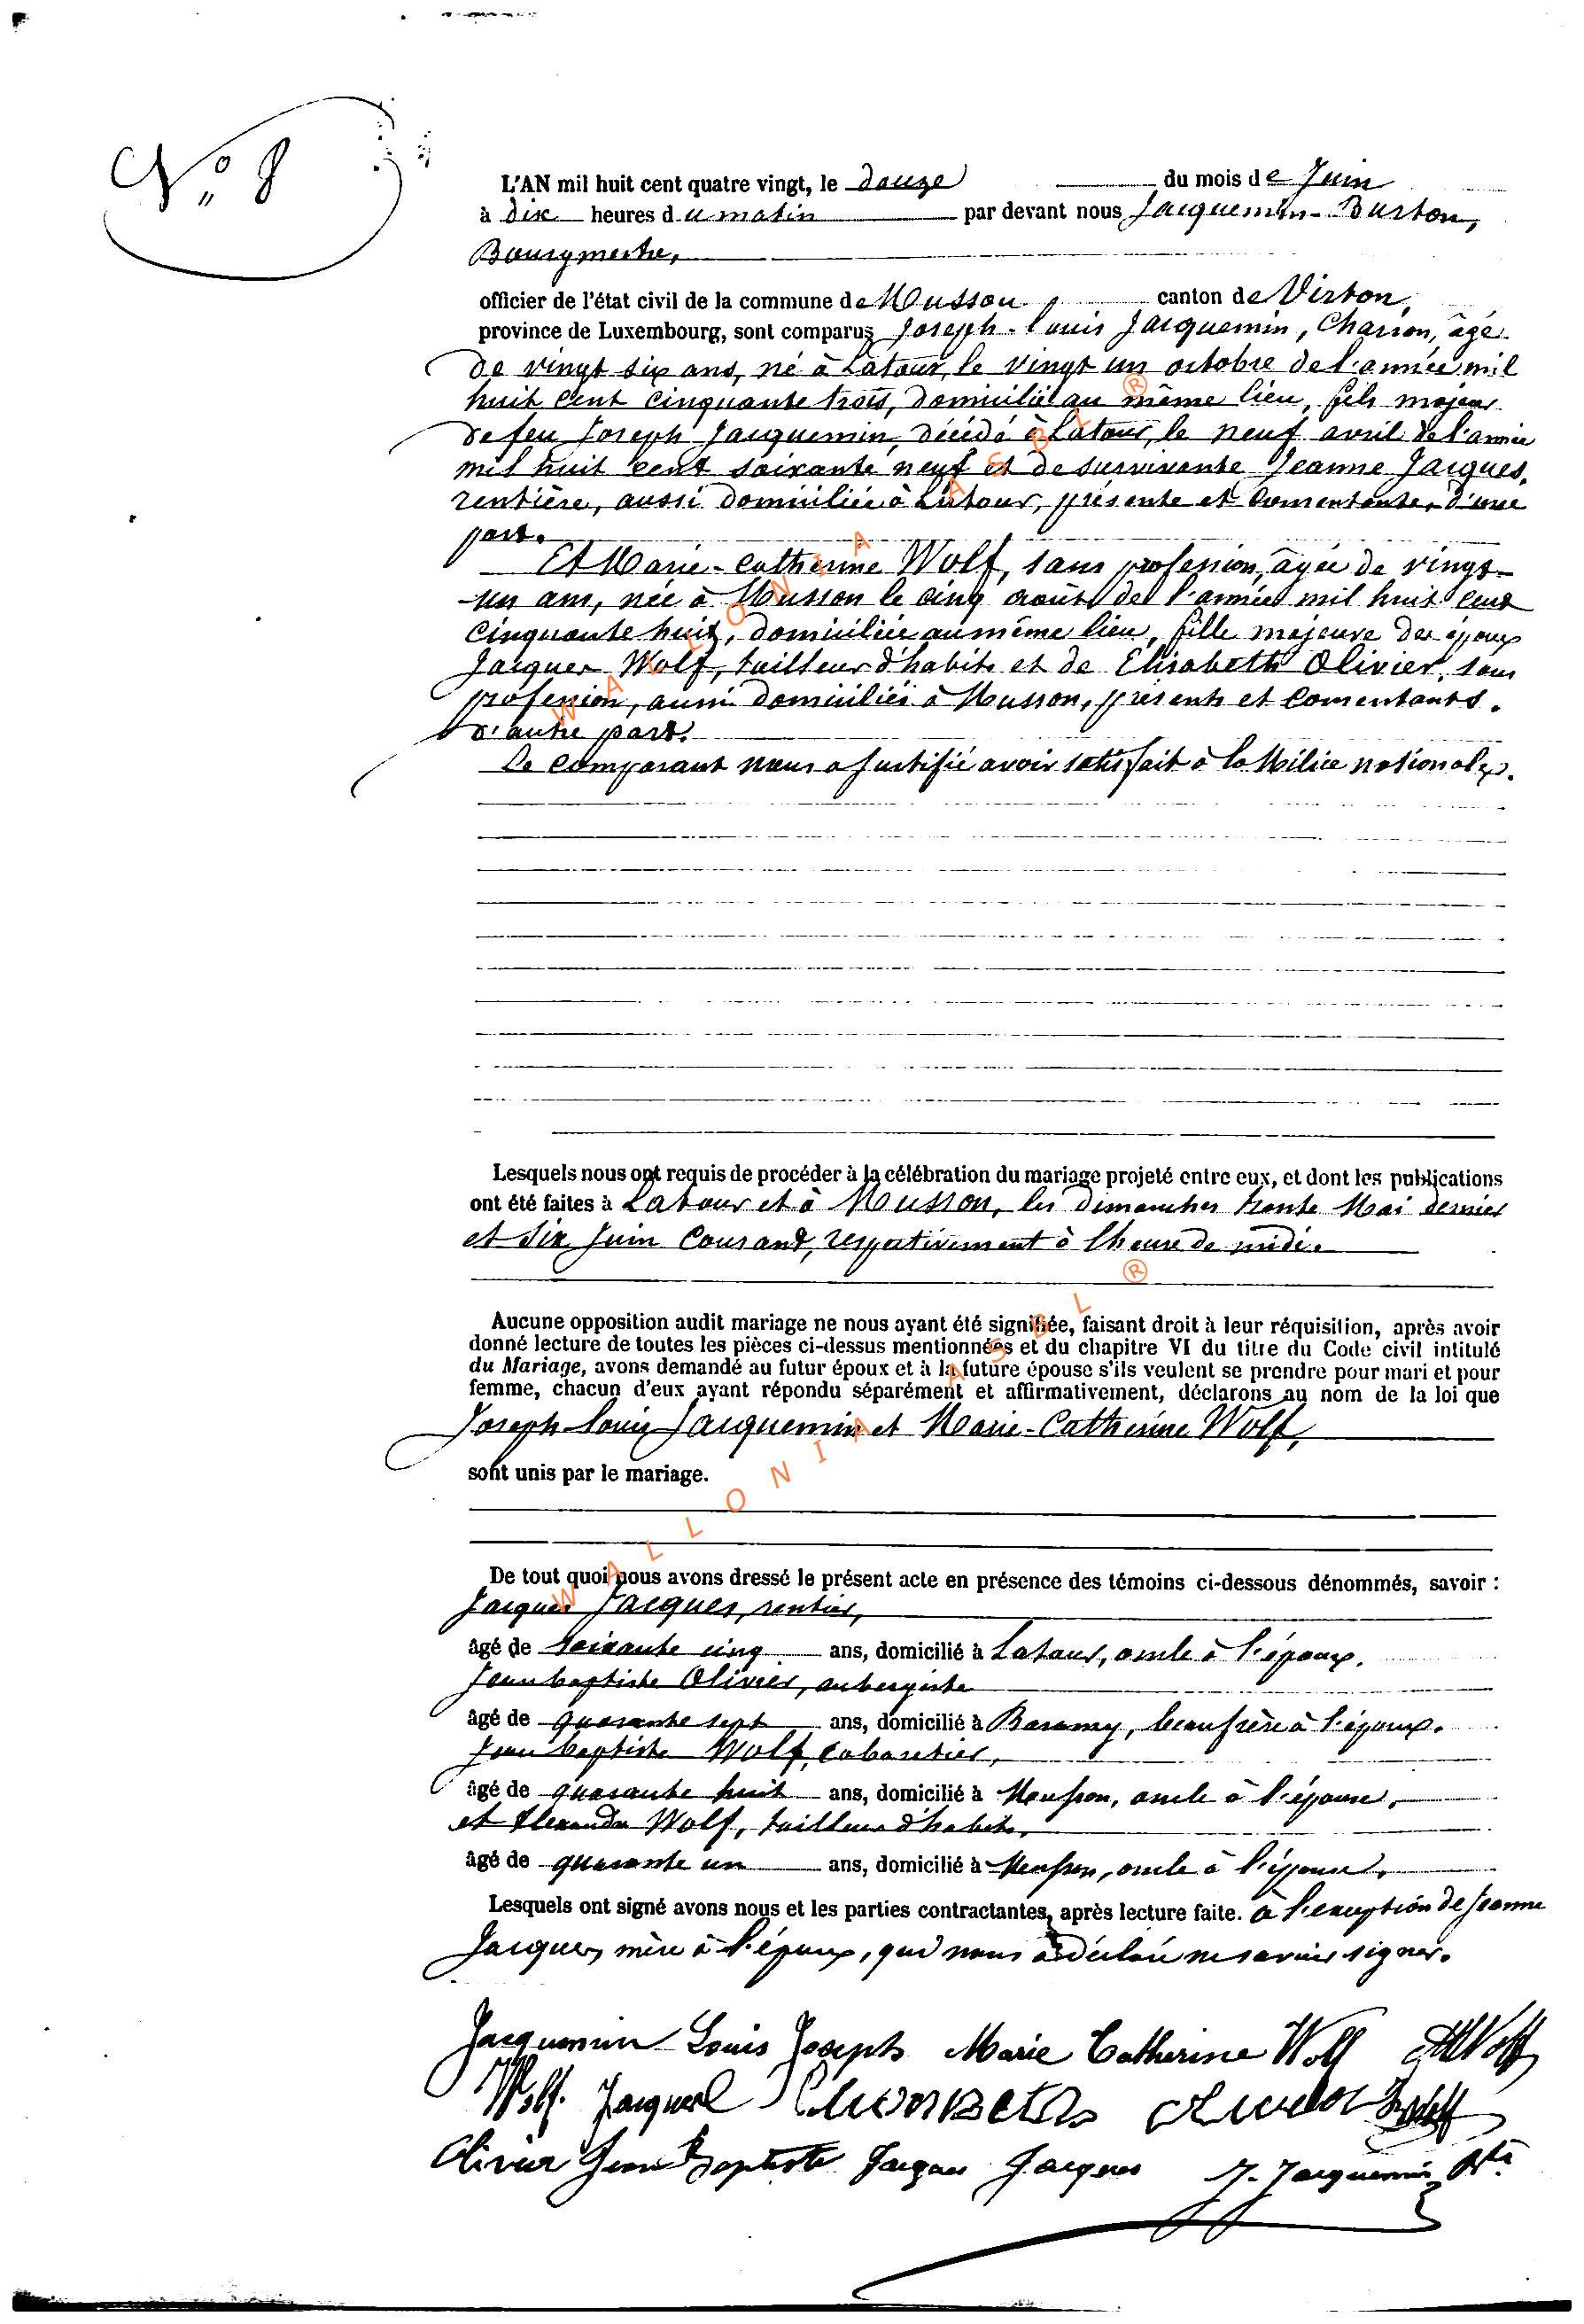 N° 8
L'AN mil huit cent quatre vingt, le douze du mois de Juin
à dix heures du matin par devant nous Jacquemin-Burton,
Bourgmestre,
officier de l'état civil de la commune de Musson, canton de Virton,
province de Luxembourg, sont comparus Joseph-Louis Jacquemin, Charron, âgé
de vingt six ans, né à Latour, le vingt un octobre de l'année mil
huit cent cinquante trois, domicilié au même lieu, fils majeur
de feu Joseph Jacquemin, décédé à Latour, le neuf avril de l'année
mil huit cent soixante neuf et de survivante Jeanne Jacques,
rentière, aussi domiciliée à Latour, présente et consentante, d'une
part.
Et Marie-Catherine Wolf, sans profession, âgée de vingt-
-un ans, née à Musson le cinq août de l'année mil huit cent
cinquante huit, domiciliée au même lieu, fille majeure des époux
Jacques Wolf, tailleur d'habits et de Elisabeth Olivier, sans
profession, aussi domiciliés à Musson, présents et consentants,
d'autre part.
Le comparant nous a justifié avoir satisfait à la Milice nationale.
Lesquels nous ont requis de procéder à la célébration du mariage projeté entre eux, et dont les publications
ont été faites à Latour et à Musson, les dimanches trente Mai dernier
et six Juin courant, respectivement à l'heure de midi.
Aucune opposition audit mariage ne nous ayant été signifiée, faisant droit à leur réquisition, après avoir
donné lecture de toutes les pièces ci-dessus mentionnées et du chapitre VI du titre du Code civil intitulé
du Mariage, avons demandé au futur époux et à la future épouse s'ils veulent se prendre pour mari et pour
femme, chacun d'eux ayant répondu séparément et affirmativement, déclarons au nom de la loi que
Joseph Louis Jacquemin et Marie-Catherine Wolf,
sont unis par le mariage.
De tout quoi nous avons dressé le présent acte en présence des témoins ci-dessous dénommés, savoir :
Jacques Jacques, rentier,
âgé de soixante cinq ans, domicilié à Latour, oncle à l'époux.
Jean baptiste Olivier, aubergiste
âgé de quarante sept ans, domicilié à Baranzy, beaufrère à l'époux.
Jean baptiste Wolf, cabaretier,
âgé de quarante huit ans, domicilié à Musson, oncle à l'épouse,
et Alexandre Wolf, tailleur d'habits,
âgé de quarante un ans, domicilié à Musson, oncle à l'épouse.
Lesquels ont signé avons nous et les parties contractantes, après lecture faite. à l'exception de Jeanne
Jacques, mère à l'époux, qui nous a déclaré ne savoir signer.
Jacquemin Louis Joseph Marie Catherine Wolf
Wolf. Jacques
Olivier Jean Baptiste Jacques Jacques J. Jacquemin
WALLONIA ASBL ®
WALLONIA ASBL ®